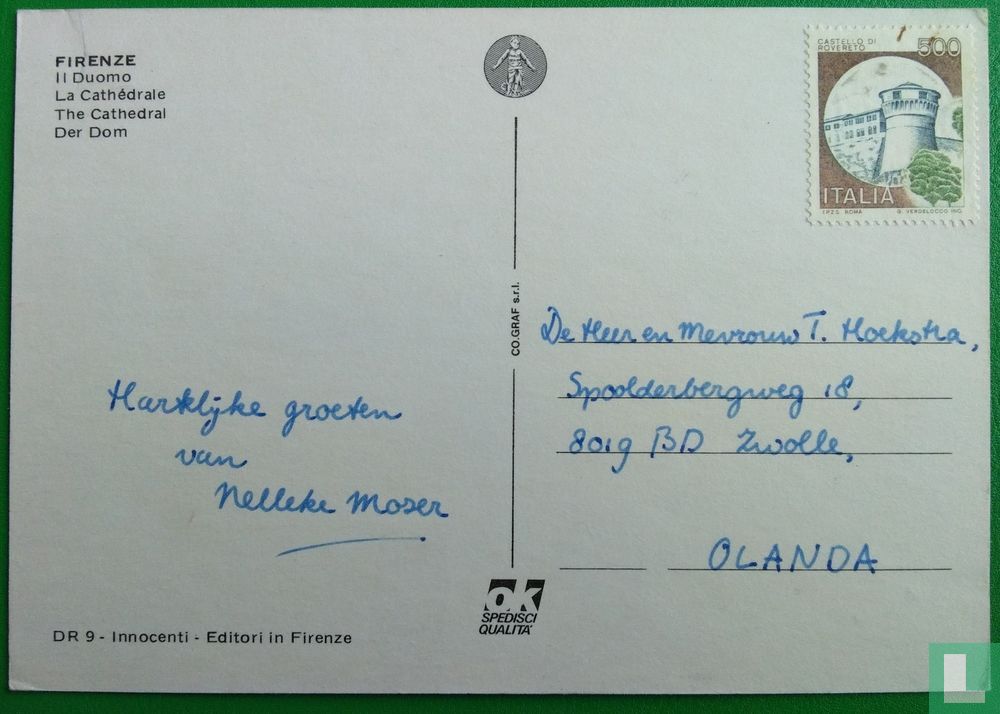 FIRENZE
Il Duomo
La Cathédrale
The Cathedral
Der Dom
CASTELLO DI
ROVERETO
500
ITALIA
I.P.Z.S. ROMA
G. VERDELOCCO INC.
CO.GRAF s.r.l.
De Heer en Mevrouw T. Hoekstra,
Spoolderbergweg 18,
8019 BD Zwolle,
OLANDA
Hartelijke groeten
van
Nelleke Moser
ok
SPEDISCI
QUALITÀ
DR 9 - Innocenti - Editori in Firenze
L